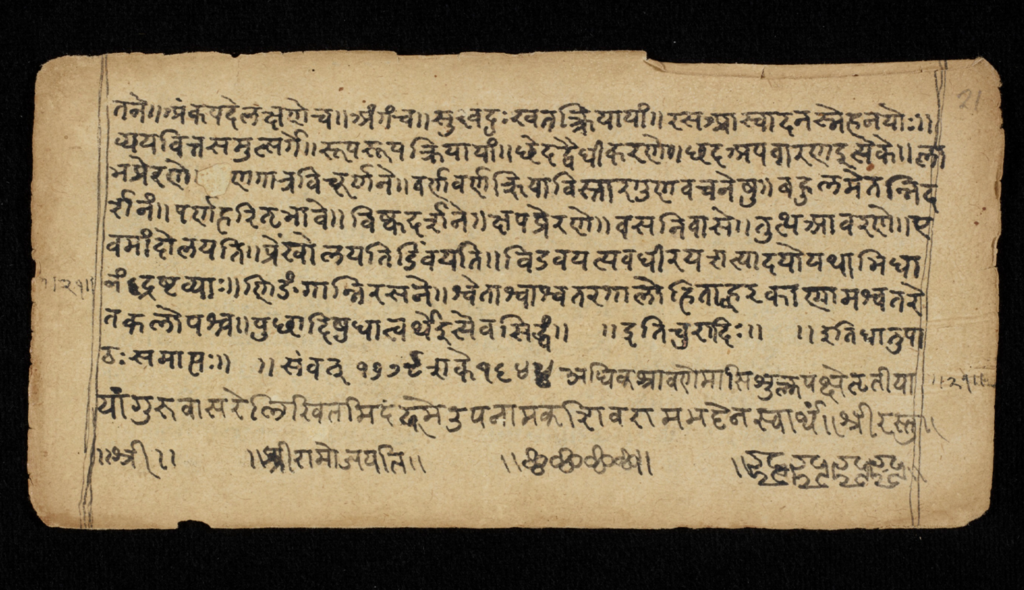 तने॥ अंकपदेलक्षणेच॥ अंगंच॥ सुखदुःखतत्क्रियायां॥ रसआस्वादनस्नेहनयोः॥
व्ययवित्तसमुत्सर्गे॥ रूपरूपक्रियायां॥ छेदद्वैधीकरणे॥ छदअपवारणइत्येके॥ ला
भप्रेरणे णगात्रविचूर्णने॥ वर्णवर्णक्रियाविस्तारगुणवचनेषु॥ बहुलमेतन्निद
र्शनं॥ पर्णहरितभावे॥ विष्कदर्शने॥ क्षपप्रेरणे॥ वसनिवासे॥ तुत्थआवरणे॥ ए
वमांदोलयति॥ प्रेंखोलयति डिंवयति॥ विडंवय अवधीरय इत्यादयोयथाभिधा
नंद्रष्टव्याः॥ णिङंगान्निरसने॥ श्वेताश्वाश्वतरगालोहिताह्वरकाणामश्वतरे
तकलोपश्च॥ पुछादिषुधात्वर्थइत्येवसिद्धं॥ ॥ इतिचुरादिः॥ ॥ इतिधातुपा
ठः समाप्तः॥ ॥ संवत् १७७९ शके १६४४ अधिकश्रावणेमासिशुक्लपक्षेतृतीया
यांगुरुवासरेलिखितमिदं उपनामक शिवरामभटेनस्वार्थं॥ श्रीरस्तु॥
॥श्री॥ ॥श्रीरामोजयति॥
॥२१॥
॥२१॥
21